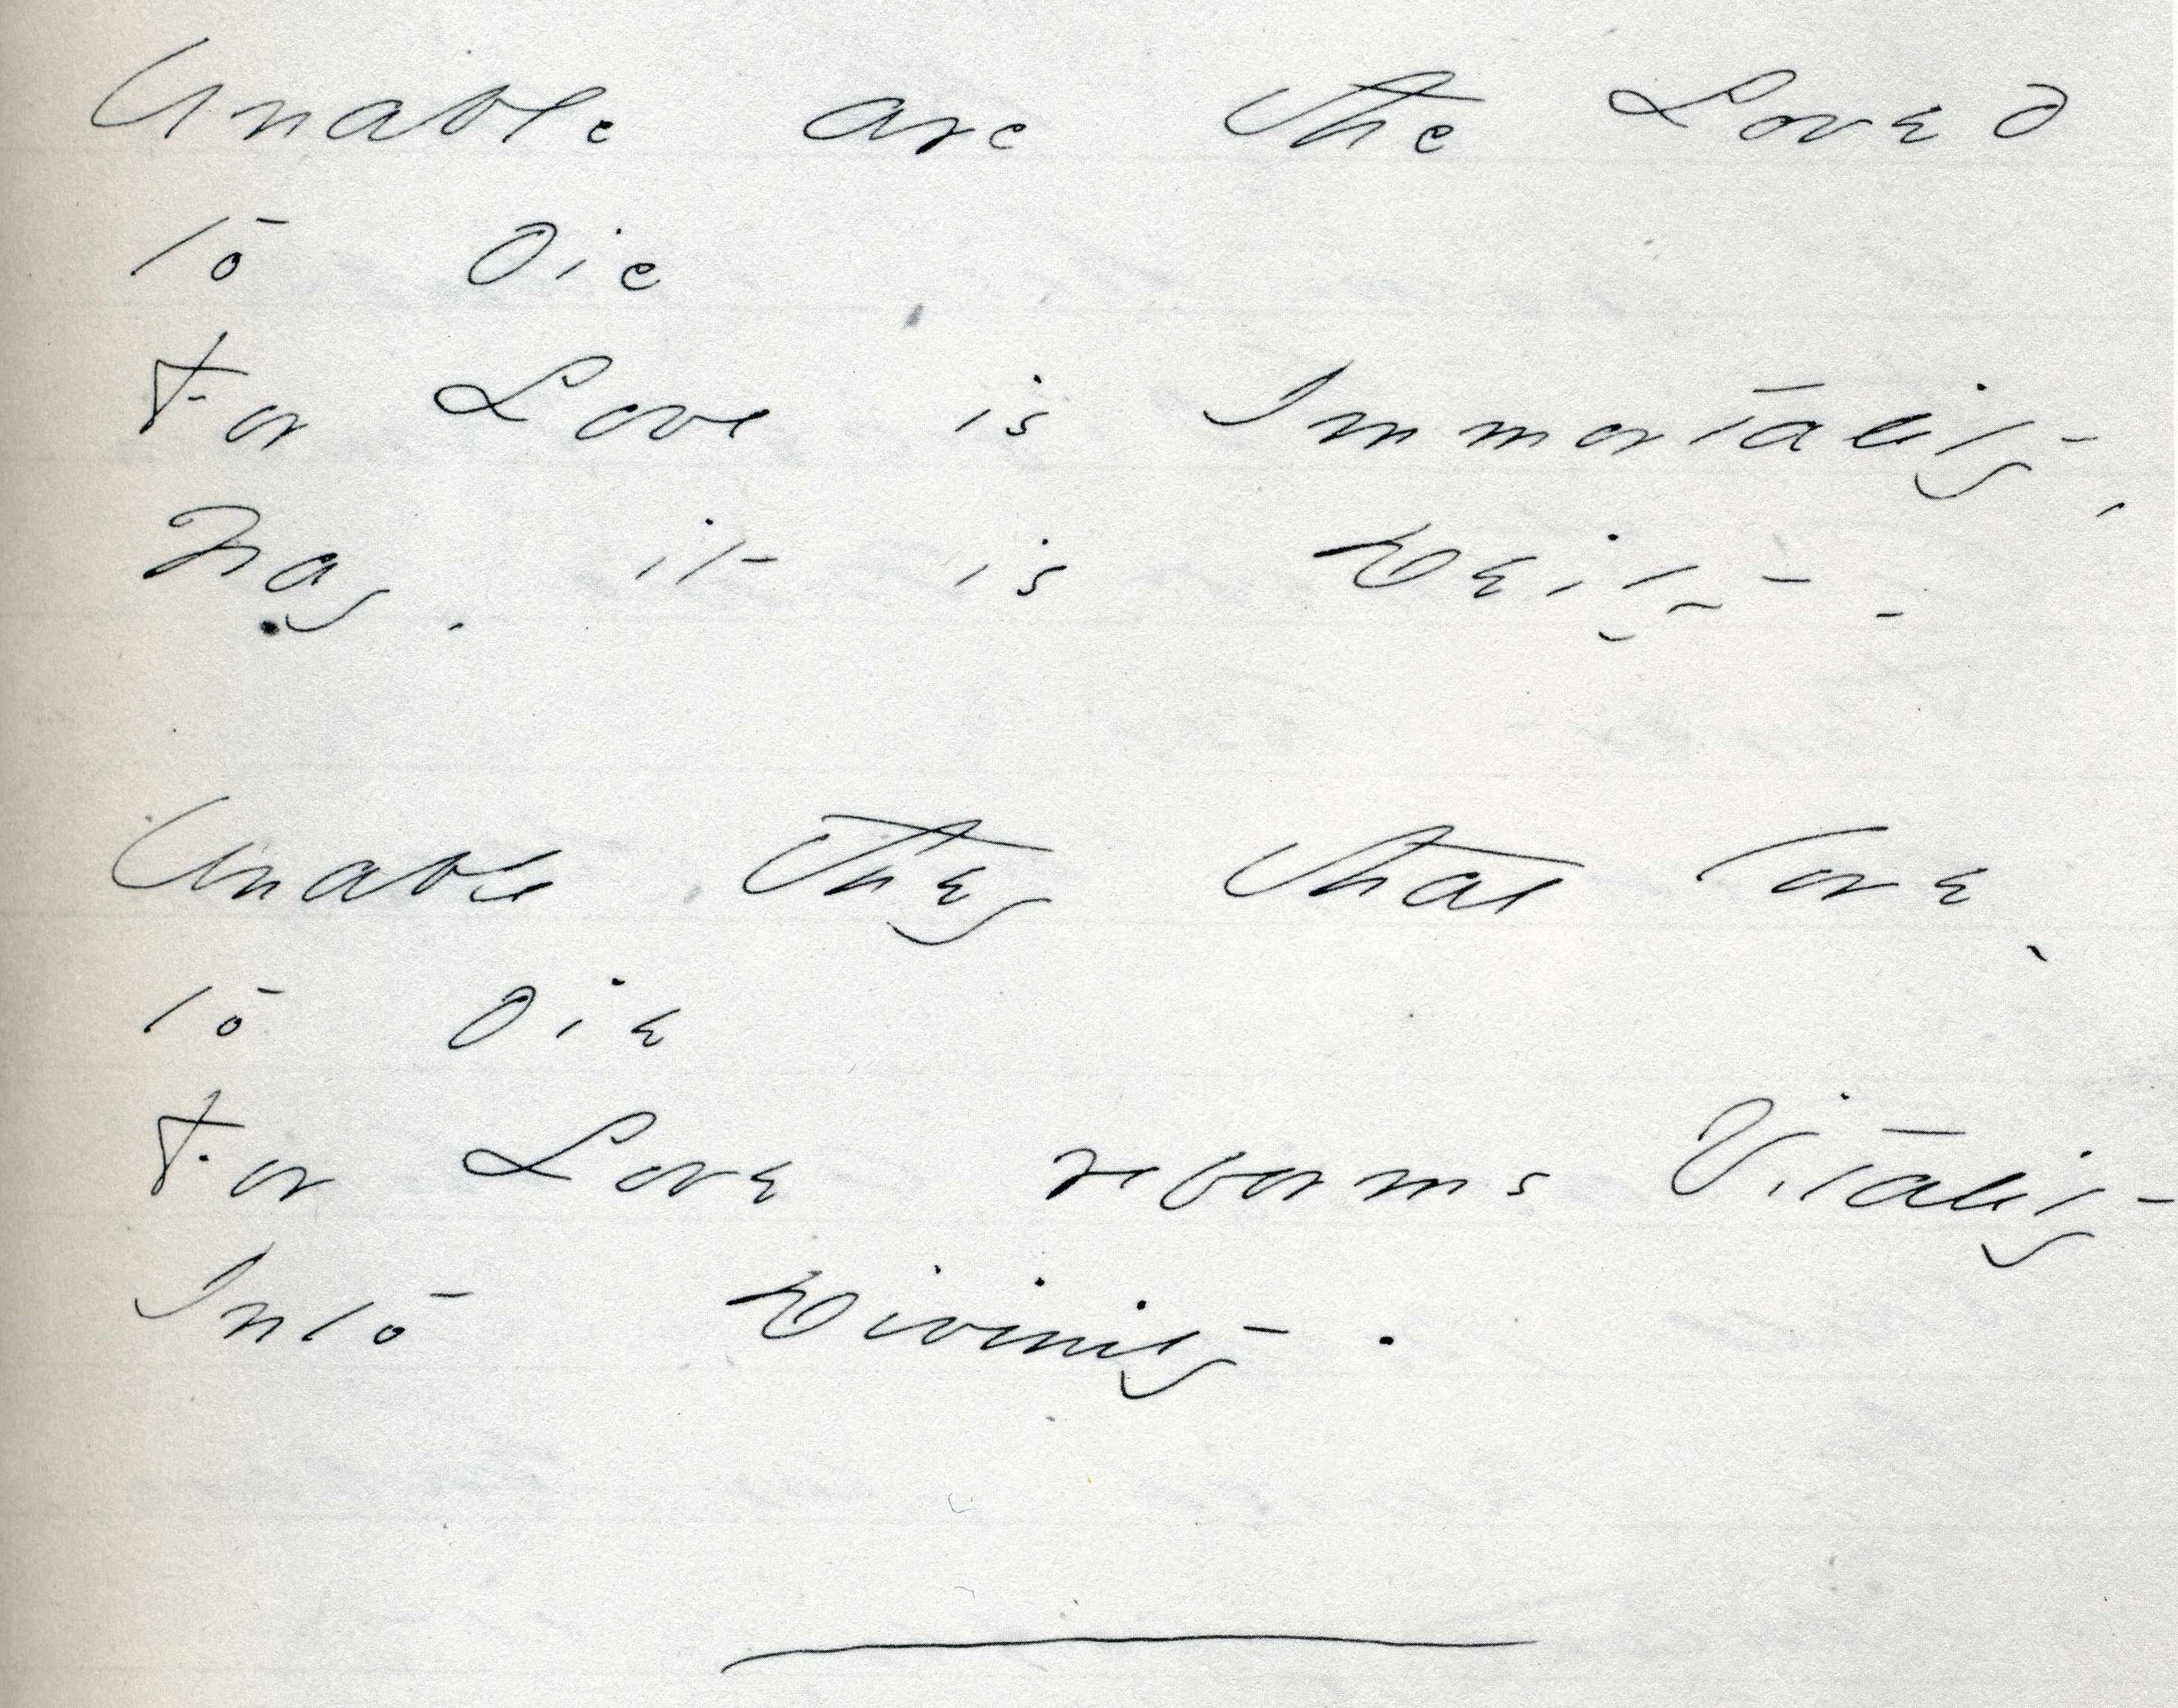 Unable are the Loved
to die
For Love is Immortality,
Nay, it is Deity -
Unable they that love,
to die
For Love reforms Vitality
Into Divinity.